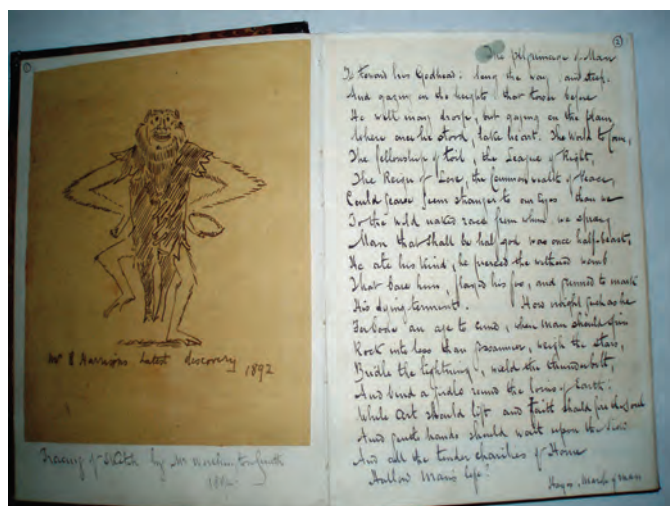 1
Mr B Harrisons latest discovery 1892
Tracing of Sketch by Mr Worthington Smith
189
2
The pilgrimage of Man
Is toward his Godhead: long the way and steep.
And gazing on the heights that tower before
He well may droop, but gazing on the plain
Where once he stood, take heart. The World to come,
The fellowship of toil, the League of Right,
The Reign of Love, the Commonwealth of Peace,
Could scarce seem stranger to our Eyes than we
To the wild naked race from whom we sprang
Man that shall be half god was once half-beast;
He ate his kind, he pierced the withered womb
That bare him, flayed his foe, and grinned to mark
His dying torment. How might such as he
Forbode an age to come, when man should
Rock into less than gossamer, weigh the stars,
Bridle the lightning, wield the thunderbolt,
And bind a girdle round the loins of Earth:
While Art should lift and Faith should fire the soul
And gentle hands should wait upon the
And all the tender charities of Home
Hallow man's life?
Hayes, March of man